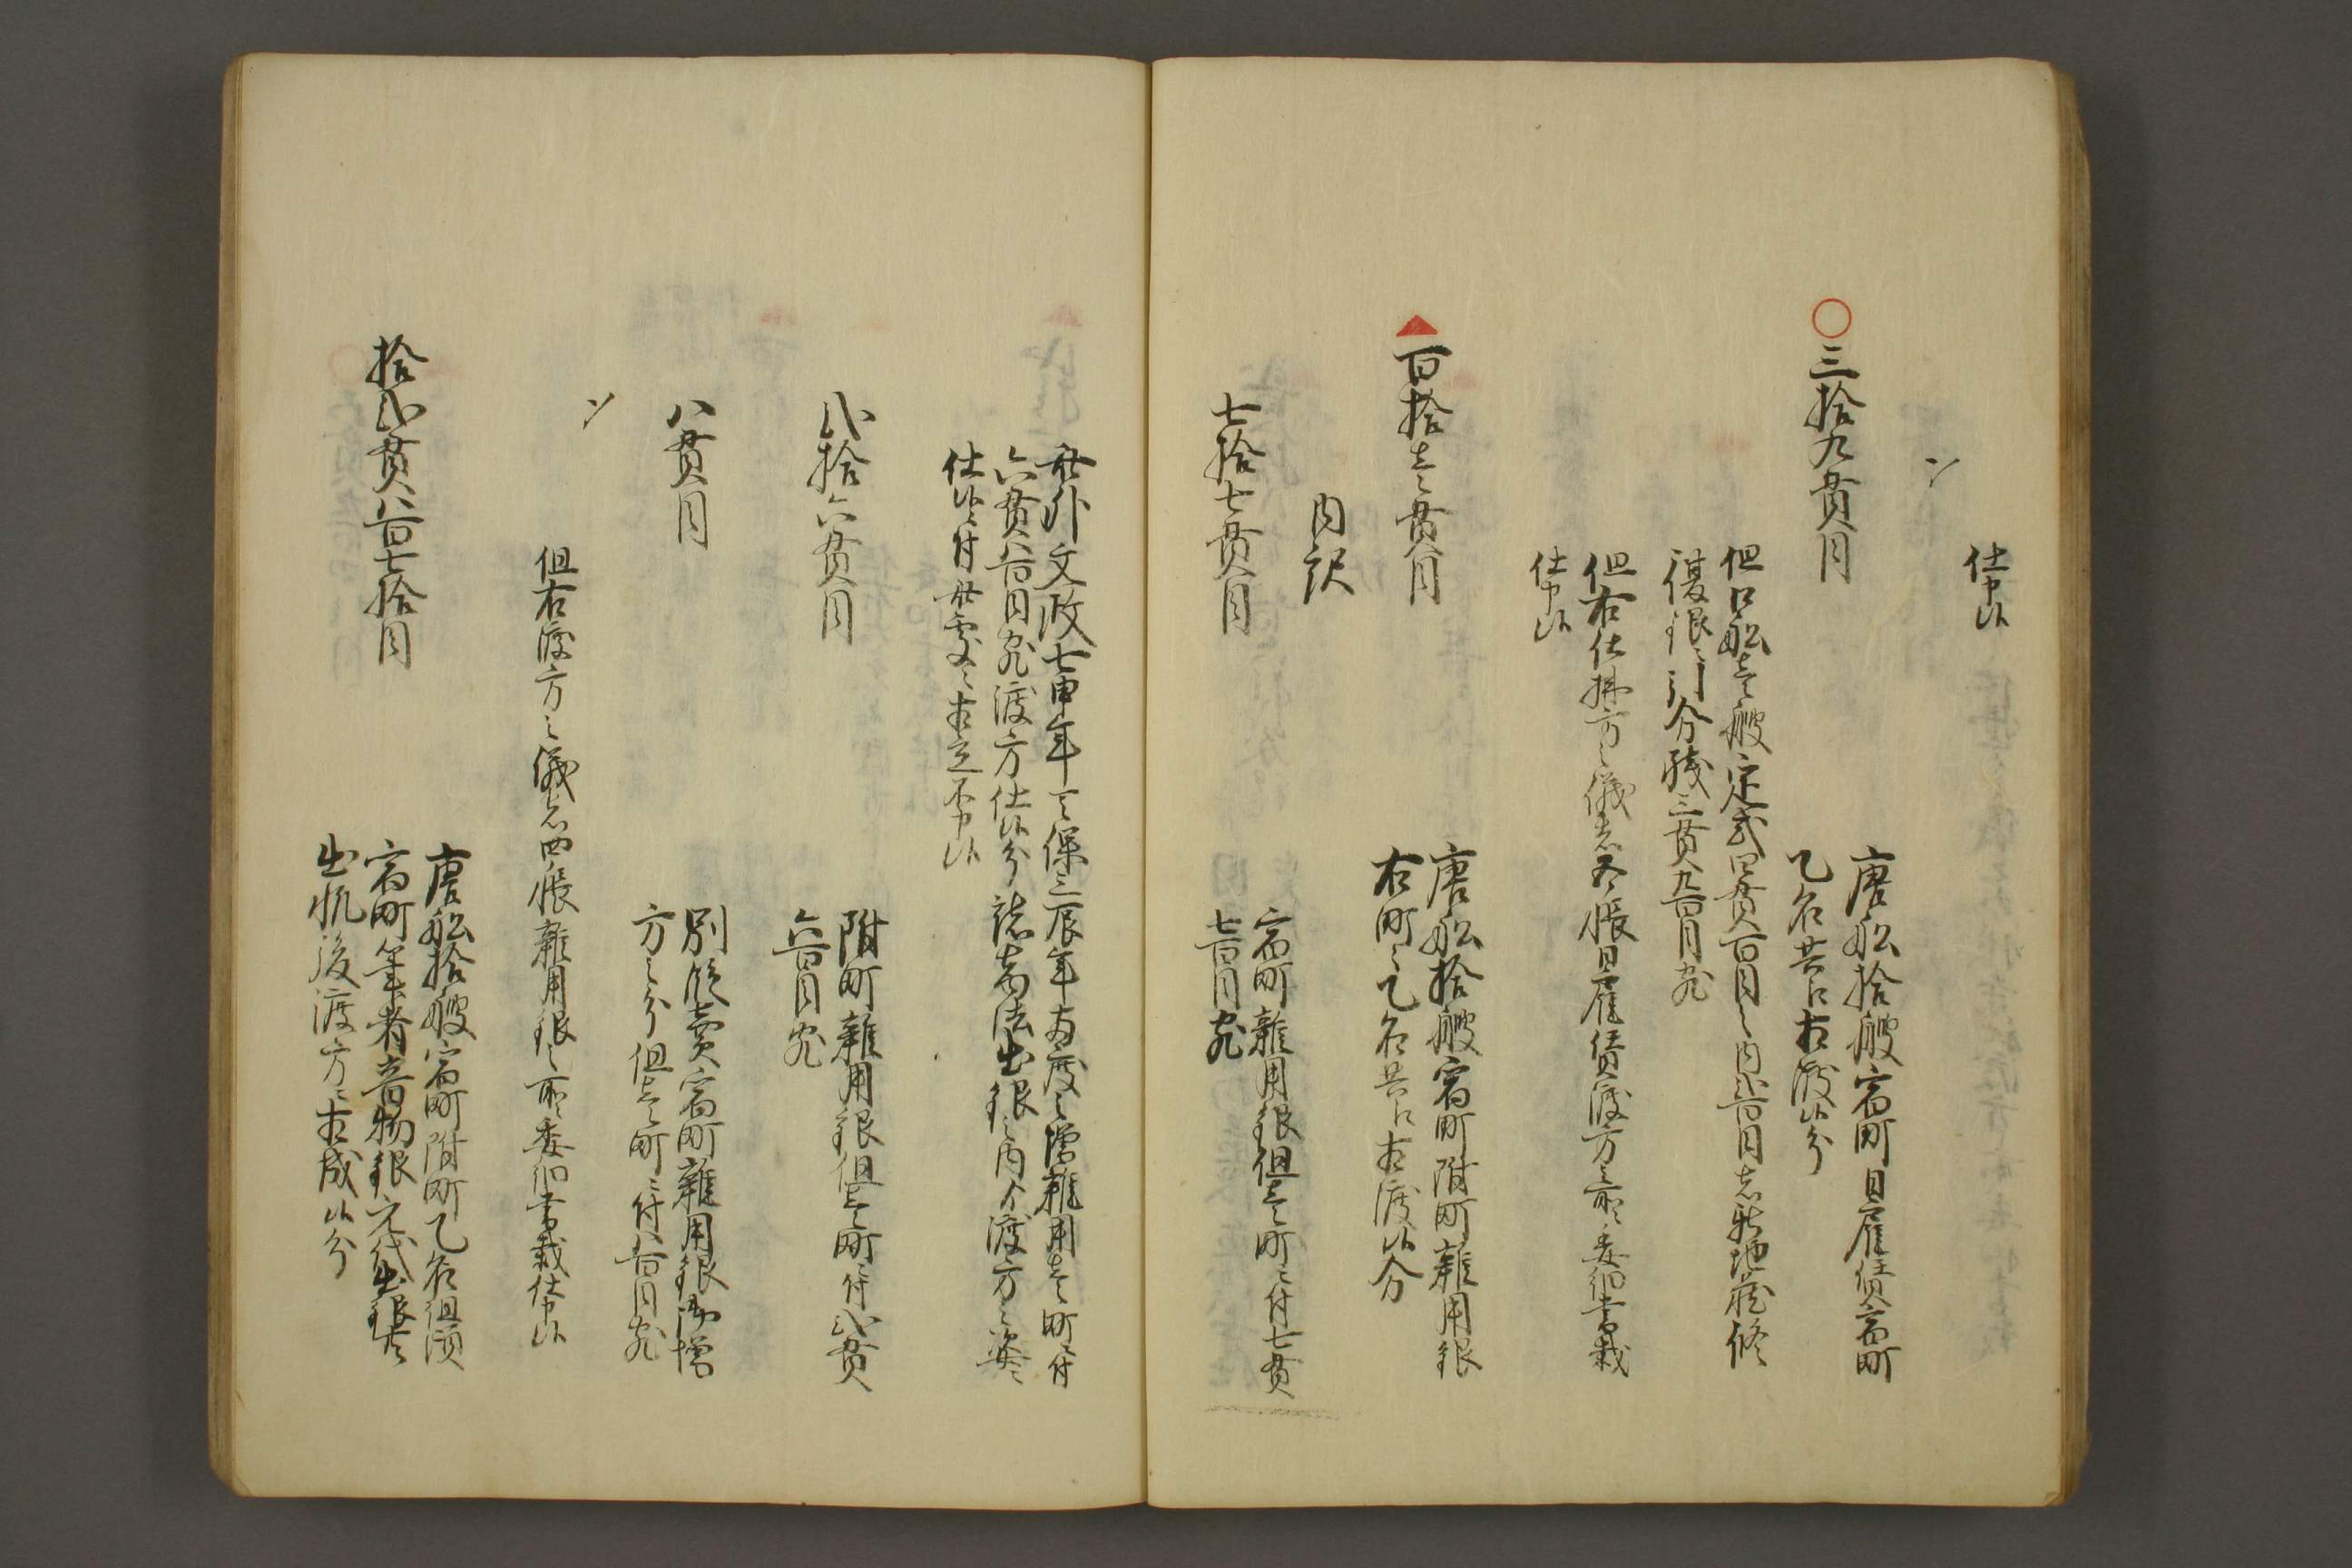 仕申候
〃
三拾九貫目
唐船拾艘宿町日雇賃宿町
乙名共江相渡候分
但口船壱艘定式四貫百目之内弐百目者新地蔵修
復銀ニ引分残三貫九百目宛
但右仕拂方之儀者五帳日雇賃渡方之所ニ委細書載
仕申候
百拾壱貫目
唐船拾艘宿町附町雑用銀
右町々乙名共江相渡候分
内訳
七拾七貫目
宿町雑用銀但壱町ニ付七貫
七百目宛
此外文政七申年天保三辰年両度之増雑用壱町ニ付
六貫八百目宛渡方仕候分諸向法出銀之内ゟ渡方之姿ニ
仕候ニ付此處ニ相立不申候
弐拾六貫目
附町雑用銀但壱町ニ付弐貫
六百目宛
八貫目
別段賣宿町雑用銀御増
方之分但壱町ニ付八百目宛
〃
但右渡方之儀者四帳雑用銀之所ニ委細書載仕申候
拾弐貫八百七拾目
唐船拾艘宿町附町乙名組頭
宿町筆者音物銀元代出銀
出帆後渡方ニ相成候分